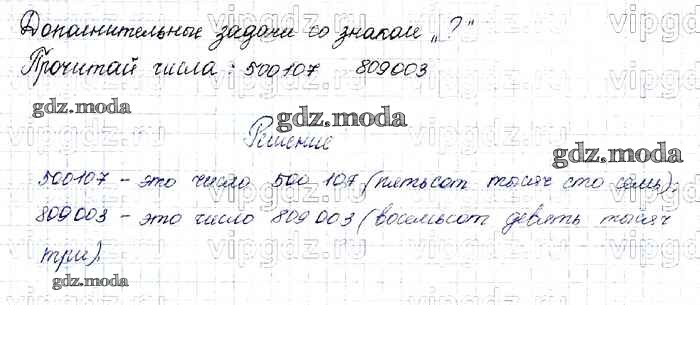 Дополнительные задачи со знаком „?"
Прочитай числа: 500107 809003
gdz.moda
gdz.moda
Решение
gdz.moda
500107 – это число 500 107 (пятьсот тысяч сто семь);
809003 – это число 809 003 (восемьсот девять тысяч
три).
gdz.moda
vipgdz.ru